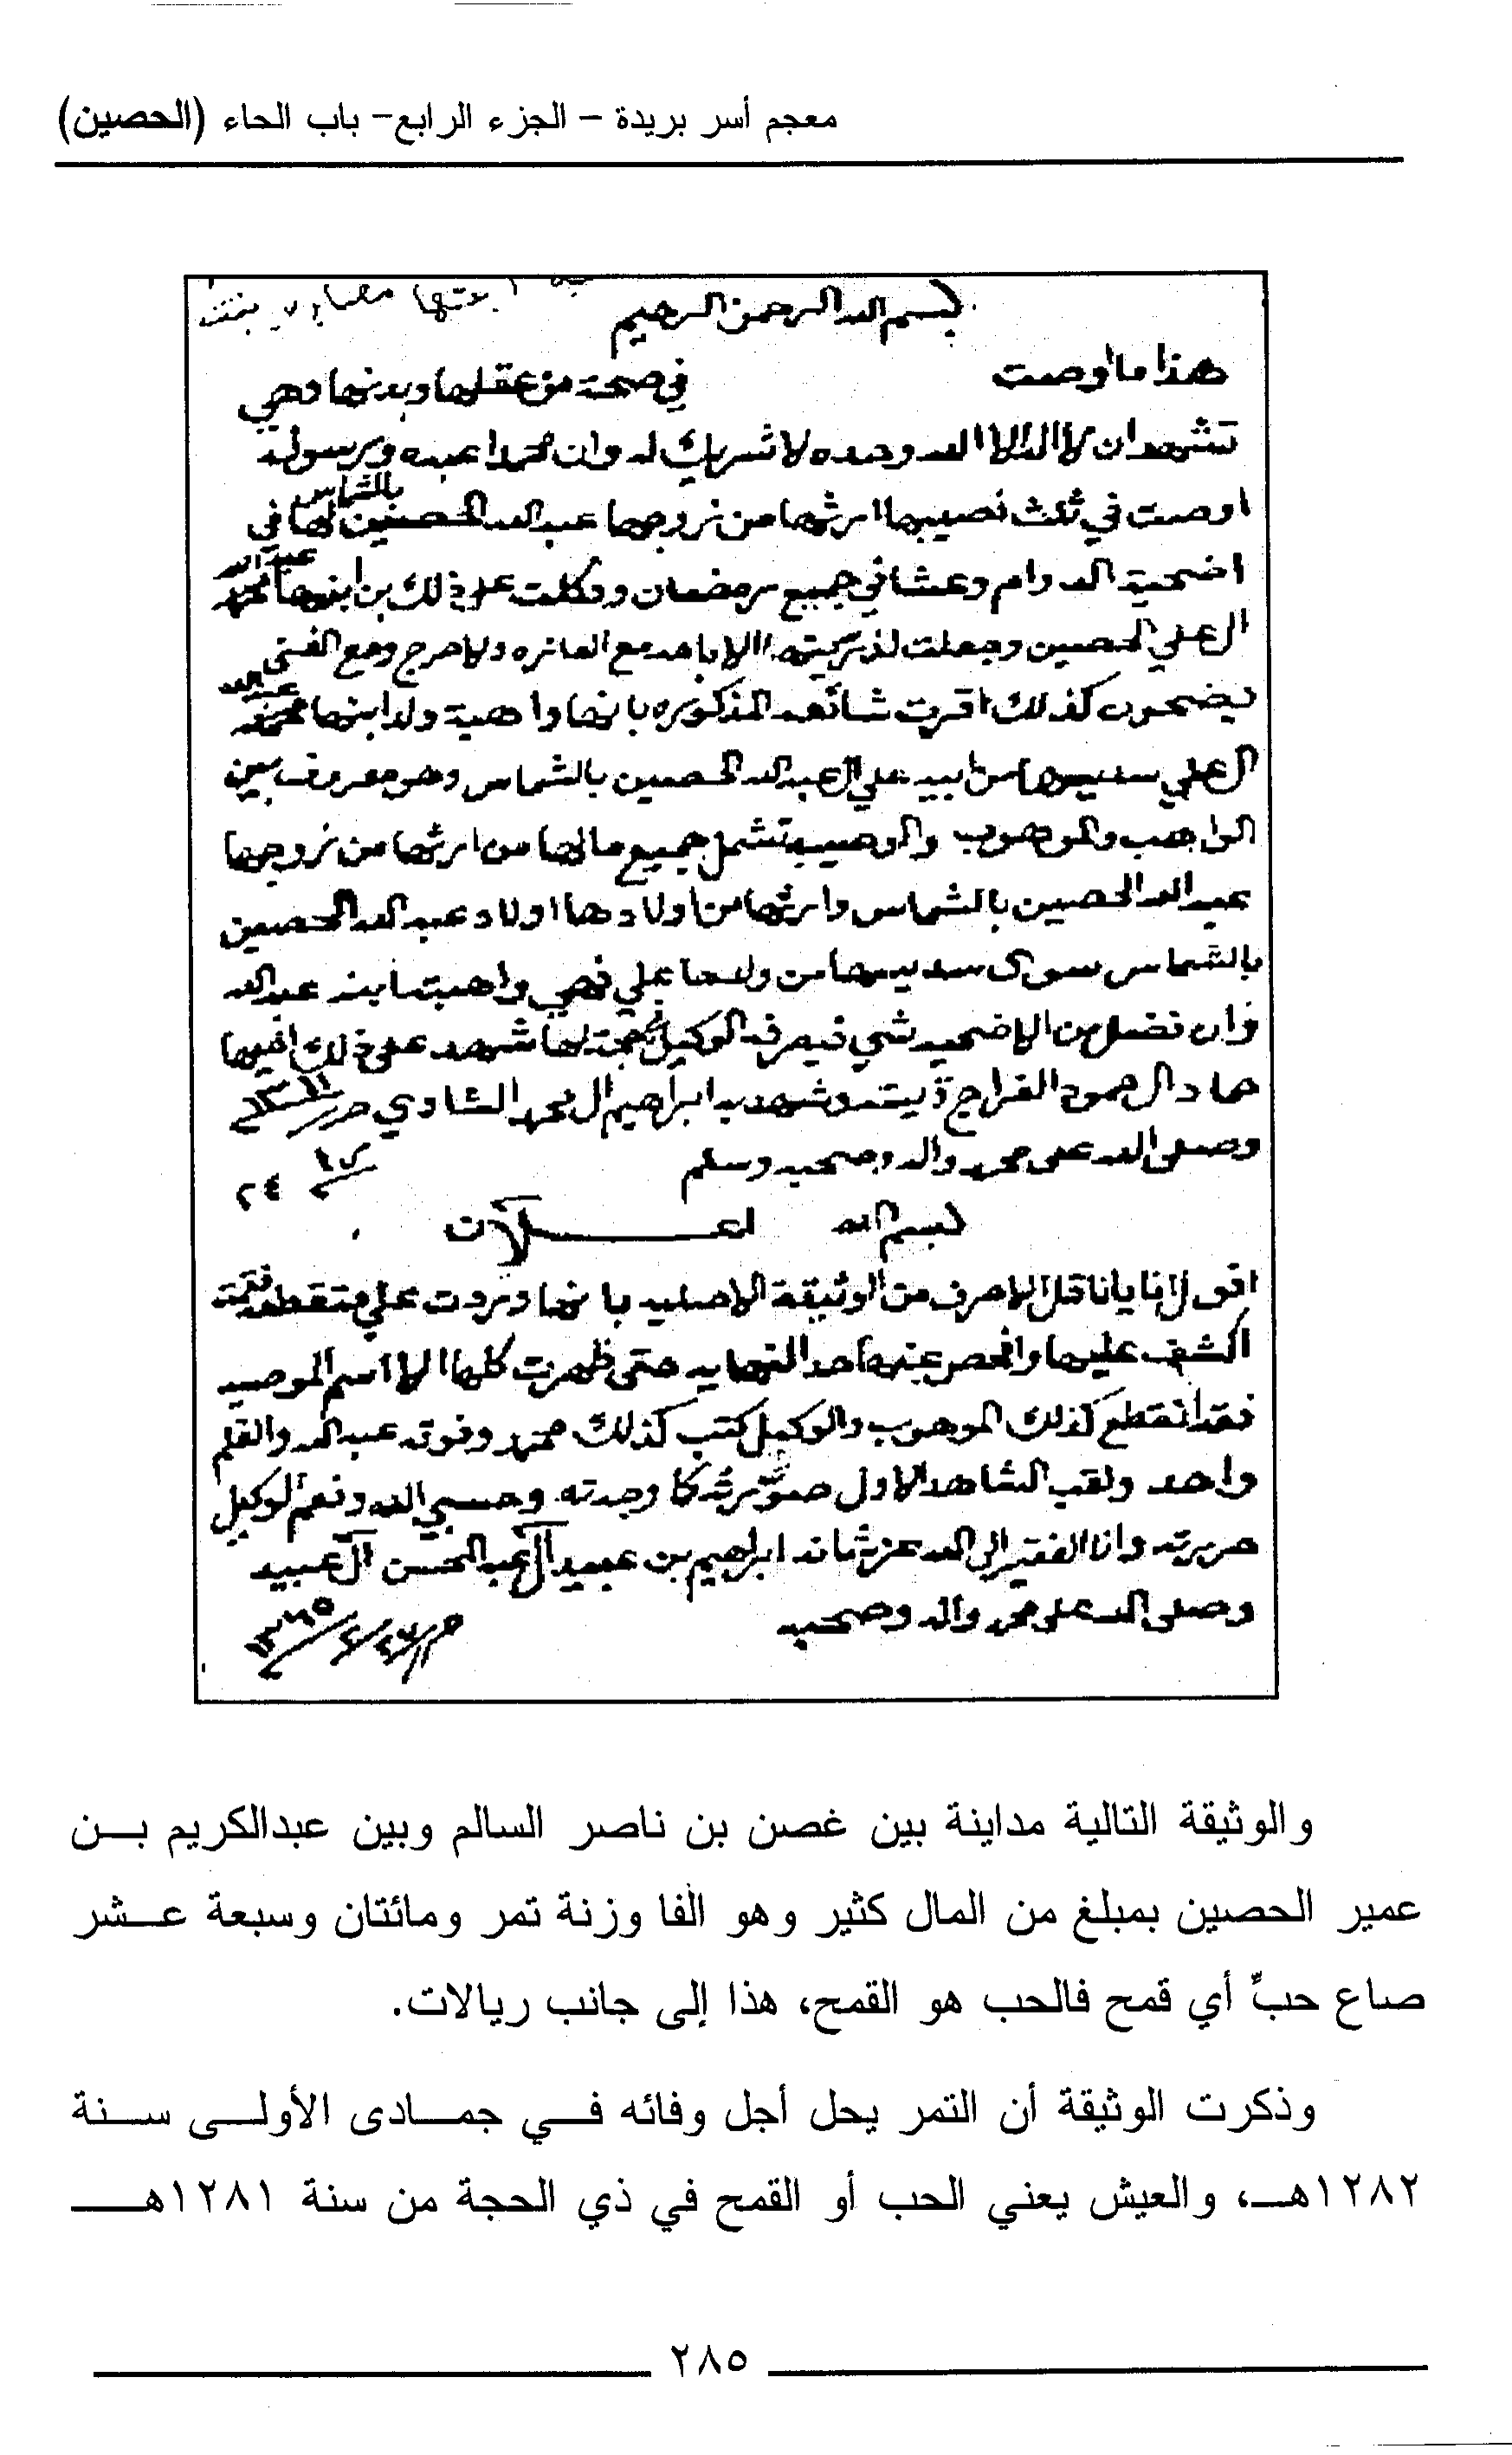 معجم أسر بريدة – الجزء الرابع– باب الحاء (الحصين)
بسم الله الرحمن الرحيم
هذا ما أوصت في صحة من عقلها وبدنها وهي
تشهد ان لا اله الا الله وحده لا شريك له وان محمدا عبده ورسوله
اوصت في ثلث نصيبها ارثها من زوجها عبدالله الحصين بالشماس لها في
اضحية الدوام وعشا في جميع رمضان ووكلت على ذلك بن ابنها محمد عبدالله
العلي الحصين وجعلت لذريتها الاباحه مع العازه ولا حرج ومع الغنى
يضحون كذلك اقرت المذكوره بانها واهبة ولد ابنها محمد عبدالله
العلي سديسها من ابيه علي العبدالله الحصين بالشماس وهو معروف بين
الواهب والموهوب والوصيه تشمل جميع مالها من ارثها من زوجها
عبدالله الحصين بالشماس وارثها من اولادها اولاد عبدالله الحصين
بالشماس سوى سديسها من ولدها علي فهي واهبته ابنه عبدالله
وان فضل من الاضحيه شي فيصرفه الوكيل لها شهد على ذلك
حماد ال حمود وشهد به ابراهيم ال محمد الشاوي
وصلى الله على محمد واله وصحبه وسلم
٢٤
بسم الله
اقول انا يا ناقل الاحرف من الوثيقة الاصليه بانها وردت علي متقطعه فتم
الكشف عليها والفحص عنها حد النهايه حتى ظهرت كلها الا اسم الموصيه
فقد انقطع كذلك الموهوب والوكيل كتب كذلك محمد وفوقه عبدالله والقلم
واحد ولقب الشاهد الاول كما وجدته وحسبي الله ونعم الوكيل
حررته وانا الفقير الى الله عز شانه ابراهيم بن عبيد آل عبدالمحسن آل عبيد
وصلى الله على محمد واله وصحبه
والوثيقة التالية مداينة بين غصن بن ناصر السالم وبين عبدالكريم بـــن
عمير الحصين بمبلغ من المال كثير وهو الفا وزنة تمر ومائتان وسبعة عـــشر
صاع حبٍّ أي قمح فالحب هو القمح، هذا إلى جانب ريالات.
وذكرت الوثيقة أن التمر يحل أجل وفائه فـــي جمـــادى الأولـــى ســـنة
١٢٨٢هـــ، والعيش يعني الحب أو القمح في ذي الحجة من سنة ١٢٨١هـــ
٢٨٥